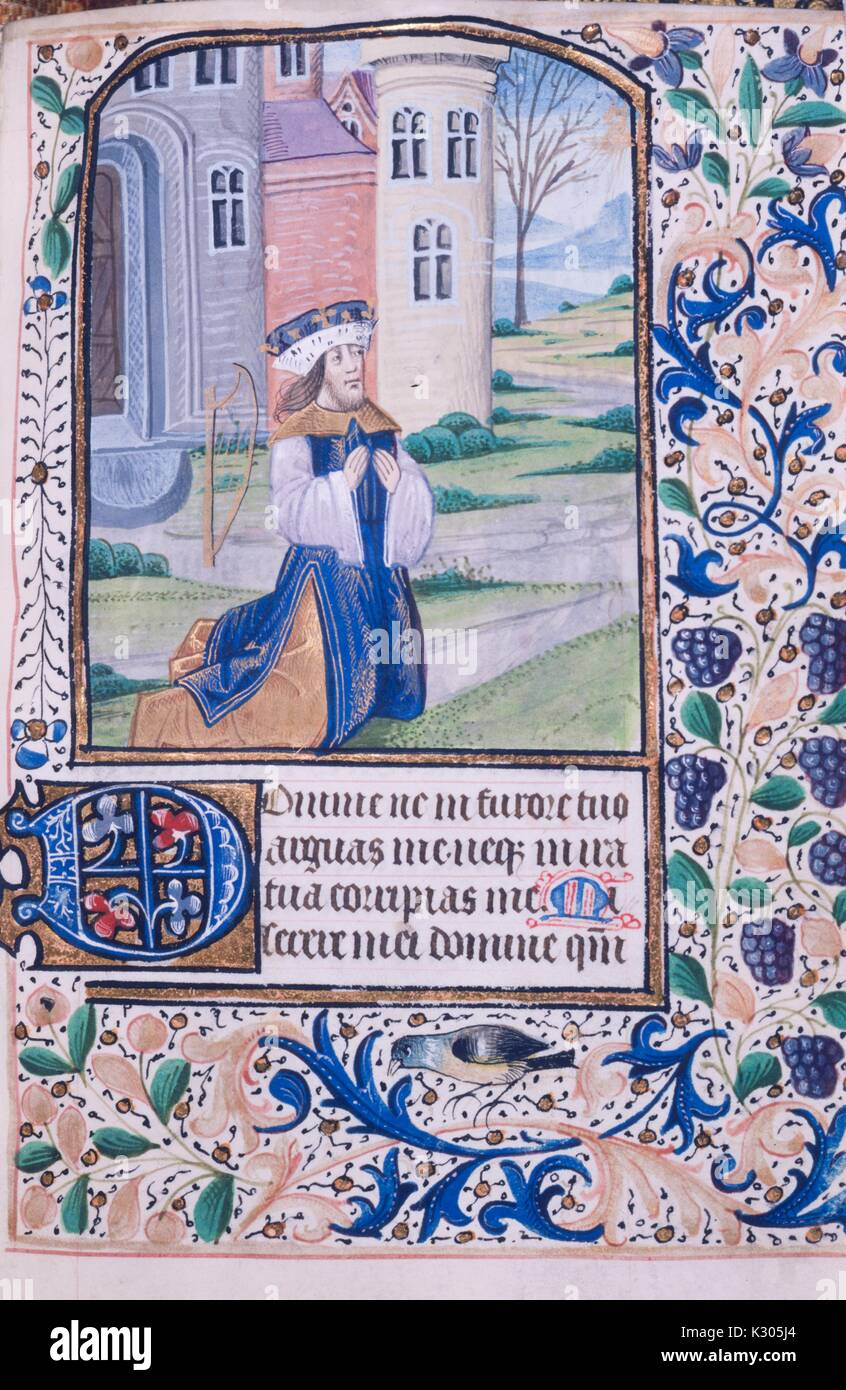 DOmine ne in furore tuo
arguas me. neqꝫ in ira
tua corripias me Mi
serere mei domine qm
alamy
Image ID: K305J4
www.alamy.com